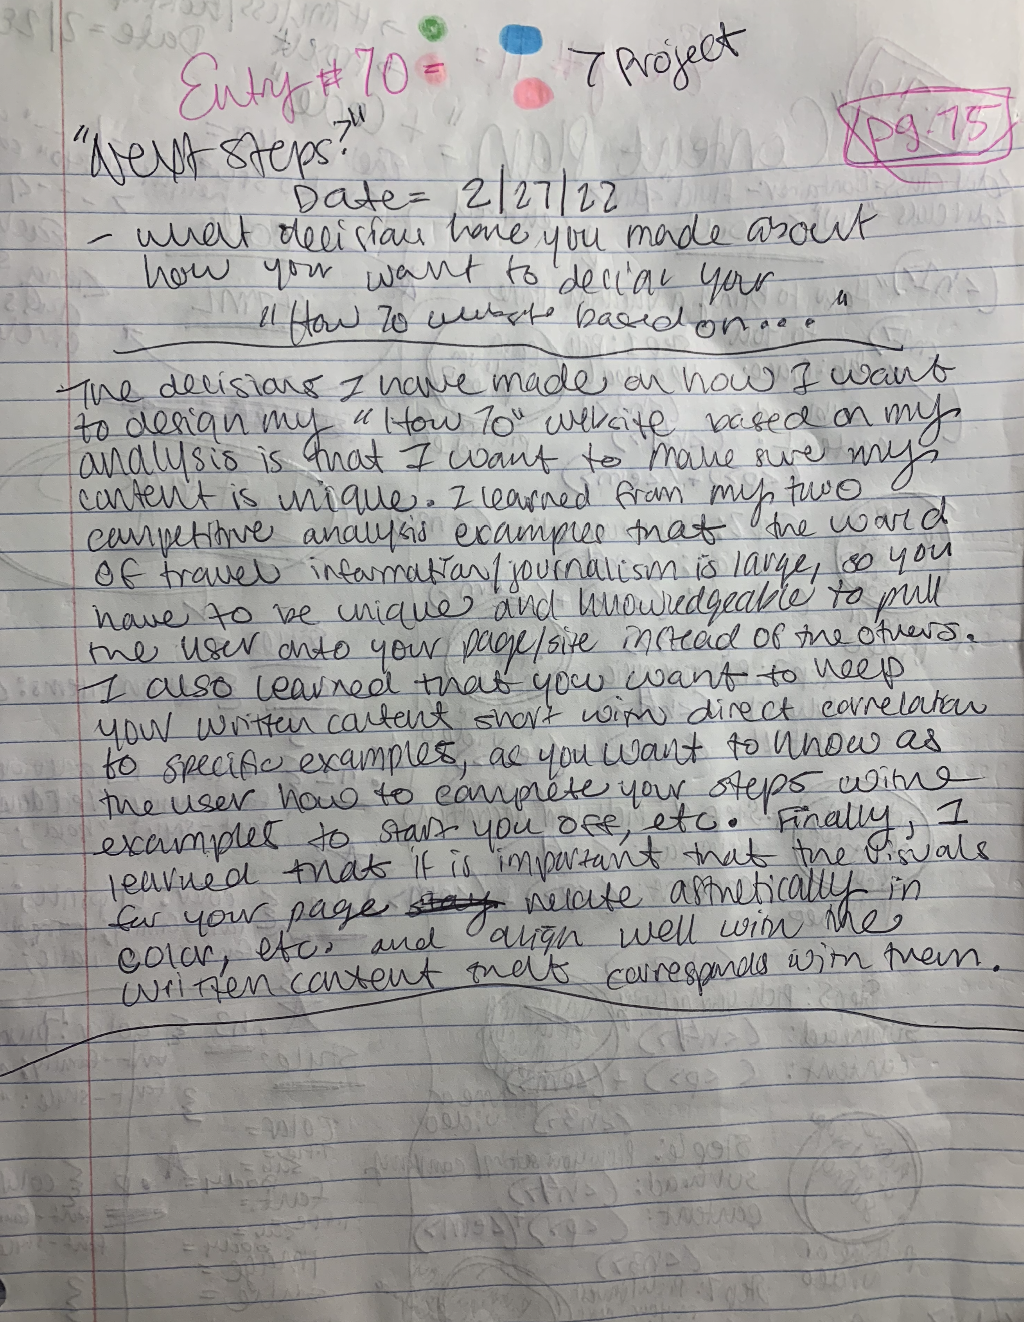 Entry # 70 =
7 Project
pg. 75
"Next steps?"
Date = 2/27/22
- what decisions have you made about
how your want to design your
"How To website based on... "
The decisions I have made on how I want
to design my "How To" website based on my
analysis is that I want to make sure my
content is unique. I learned from my two
competitive analysis examples that the world
of travel information/journalism is large, so you
have to be unique and knowledgeable to pull
the user onto your page/site instead of the others.
I also learned that you want to keep
your written content short with direct correlation
to specific examples, as you want to know as
the user how to complete your steps with
examples to start you off, etc. Finally, I
learned that it is important that the visuals
for your page relate asthetically in
color, etc. and align well with the
written content that corresponds with them.